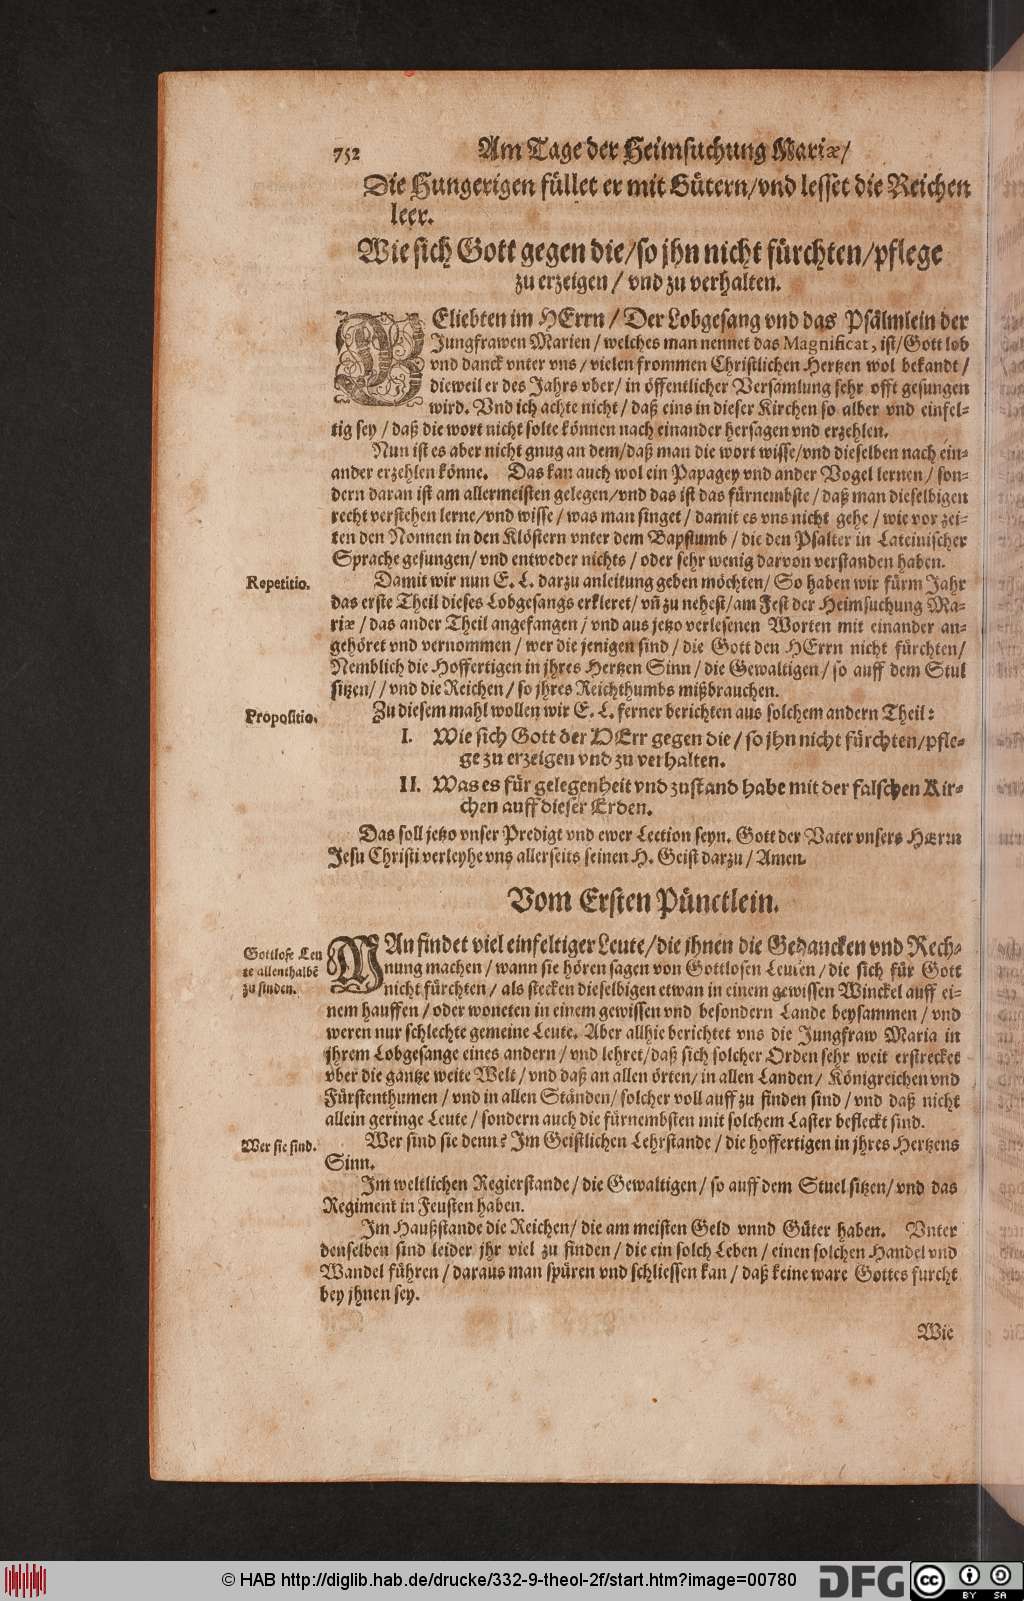 752 Am Tage der Heimsuchung Mariæ/
Die Hungerigen füllet er mit Gütern/vnd lesset die Reichen
leer.
Wie sich Gott gegen die/so jhn nicht fürchten/pflege
zu erzeigen / vnd zu verhalten.
GEliebten im HErrn / Der Lobgesang vnd das Psälmlein der
Jungfrawen Marien / welches man nennet das Magnificat, ist/Gott lob
vnd danck vnter vns / vielen frommen Christlichen Hertzen wol bekandt /
dieweil er des Jahrs vber / in öffentlicher Versamlung sehr offt gesungen
wird. Vnd ich achte nicht / daß eins in dieser Kirchen so alber vnd einfel-
tig sey / daß die wort nicht solte können nach einander hersagen vnd erzehlen.
Nun ist es aber nicht gnug an dem/daß man die wort wisse/vnd dieselben nach ein-
ander erzehlen könne. Das kan auch wol ein Papagey vnd ander Vogel lernen / son-
dern daran ist am allermeisten gelegen/vnd das ist das fürnembste / daß man dieselbigen
recht verstehen lerne/vnd wisse / was man singet / damit es vns nicht gehe / wie vor zei-
ten den Nonnen in den Klöstern vnter dem Bapstumb / die den Psalter in Lateinischer
Sprache gesungen/ vnd entweder nichts / oder sehr wenig darvon verstanden haben.
Repetitio.
Damit wir nun E. L. darzu anleitung geben möchten/ So haben wir fürm Jahr
das erste Theil dieses Lobgesangs erkleret/ vñ zu nehest/am Fest der Heimsuchung Ma-
riæ / das ander Theil angefangen / vnd aus jetzo verlesenen Worten mit einander an-
gehöret vnd vernommen / wer die jenigen sind / die Gott den HErrn nicht fürchten/
Nemblich die Hoffertigen in jhres Hertzen Sinn / die Gewaltigen / so auff dem Stul
sitzen/ / vnd die Reichen / so jhres Reichthumbs mißbrauchen.
Propositio.
Zu diesem mahl wollen wir E. L. ferner berichten aus solchem andern Theil:
I. Wie sich Gott der HErr gegen die / so jhn nicht fürchten/pfle-
ge zu erzeigen vnd zu verhalten.
II. Was es für gelegenheit vnd zustand habe mit der falschen Kir-
chen auff dieser Erden.
Das soll jetzo vnser Predigt vnd ewer Lection seyn. Gott der Vater vnsers HErrn
Jesu Christi verleyhe vns allerseits seinen H. Geist darzu / Amen.
Vom Ersten Pünctlein.
Gottlose Leu
te allenthalbē
zu finden.
MAn findet viel einfeltiger Leute/die jhnen die Gedancken vnd Rech-
nung machen / wann sie hören sagen von Gottlosen Leuten / die sich für Gott
nicht fürchten / als stecken dieselbigen etwan in einem gewissen Winckel auff ei-
nem hauffen / oder woneten in einem gewissen vnd besondern Lande beysammen / vnd
weren nur schlechte gemeine Leute. Aber allhie berichtet vns die Jungfraw Maria in
jhrem Lobgesange eines andern / vnd lehret/daß sich solcher Orden sehr weit erstrecket
vber die gantze weite Welt / vnd daß an allen örten/ in allen Landen / Königreichen vnd
Fürstenthumen / vnd in allen Ständen/ solcher voll auff zu finden sind / vnd daß nicht
allein geringe Leute / sondern auch die fürnembsten mit solchem Laster befleckt sind.
Wer sie sind.
Wer sind sie denn? Im Geistlichen Lehrstande / die hoffertigen in jhres Hertzens
Sinn.
Im weltlichen Regierstande / die Gewaltigen / so auff dem Stuel sitzen/ vnd das
Regiment in Feusten haben.
Im Haußstande die Reichen/ die am meisten Geld vnnd Güter haben. Vnter
denselben sind leider jhr viel zu finden / die ein solch Leben / einen solchen Handel vnd
Wandel führen / daraus man spüren vnd schliessen kan / daß keine ware Gottes furcht
bey jhnen sey.
Wie
© HAB http://diglib.hab.de/drucke/332-9-theol-2f/start.htm?image=00780
DFG
cc
BY SA